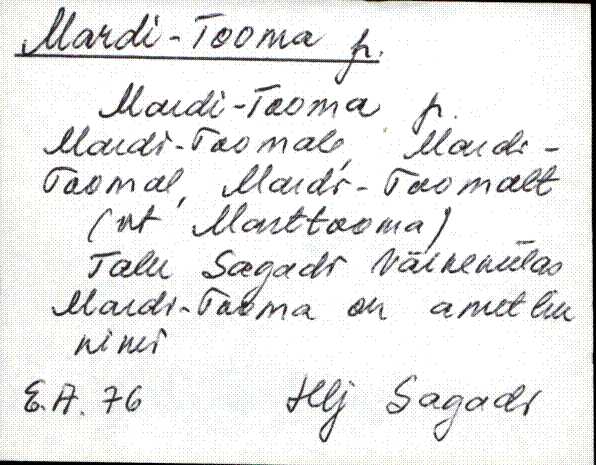 Mardi-Tooma p.
Mardi-Tooma p.
Mardi-Toomale, Mardi-
Toomal, Mardi-Toomalt
(vt Marttooma)
Talu Sagadi Väinekülas
Mardi-Tooma on ametlik
nimi
E.A. 76 Hlj Sagadi